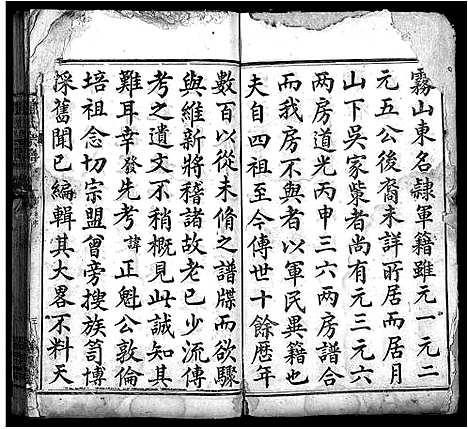 霧山東名隷軍籍雖元一元二
元五公後裔未詳所居而居月
山下吳家㙇者尚有元三元六
兩房道光丙申三六兩房譜合
而我房不與者以軍民異籍也
夫自四祖至今傳世十餘歷年
數百以從未脩之譜牒而欲驟
與維新將稽諸故老已少流傳
考之遺文不稍概見此誠知其
難耳幸發先考諱正魁公敦倫
培祖念切宗盟曾旁搜族笥博
採舊聞已編輯其大畧不料天